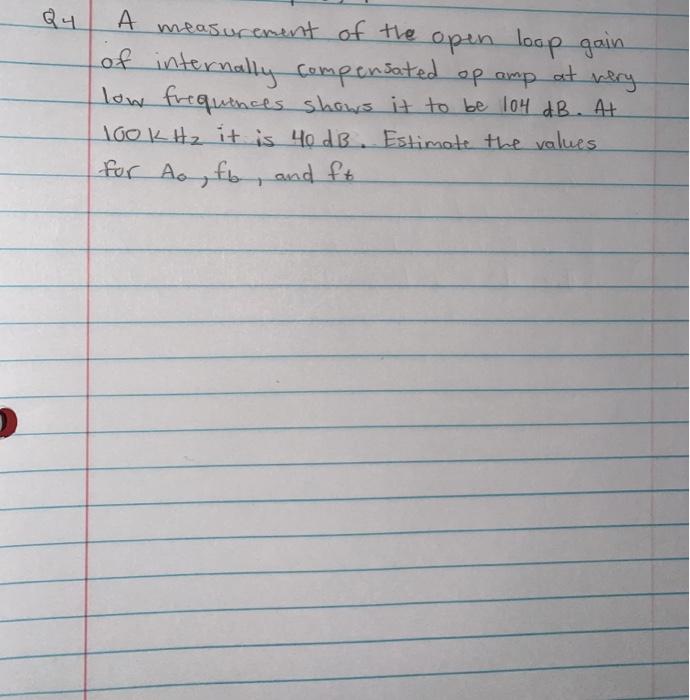 Q4 A measurement of the open loop gain
of internally compensated op amp at very
low frequences shows it to be 104 dB. At
100 KHz it is 40 dB. Estimate the values
for A₀, fb, and ft